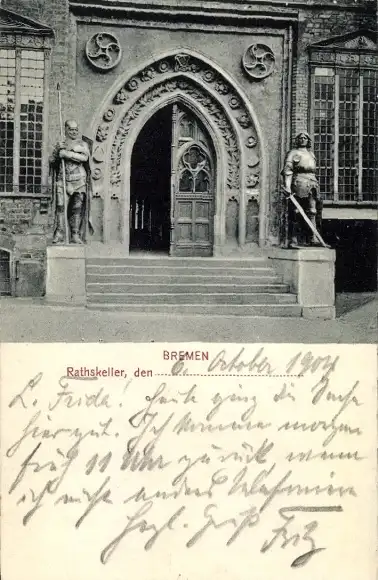 BREMEN
Rathskeller, den 6. October 1904
L. Frida! Heute ging die Sache
hier gut. Ich komme morgen
früh 11 Uhr zurück, wenn
ich nicht anders telefoniere
Herzl. Gruß
Fritz